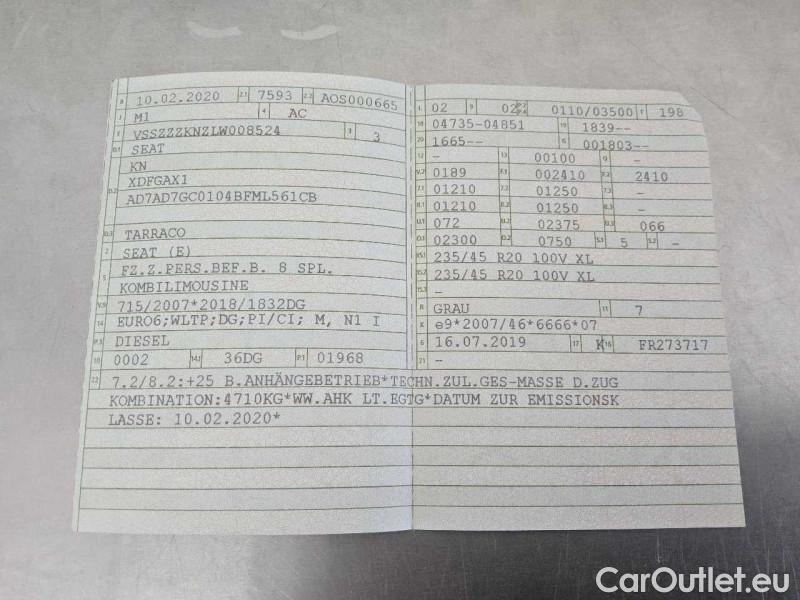 B 10.02.2020 2.1 7593 2.2 AOS000665
J M1 4 AC
E VSSZZZKNZLW008524 3 3
D.1 SEAT
KN
D.2 XDFGAX1
AD7AD7GC0104BFML561CB
D.3 TARRACO
2 SEAT (E)
5 FZ.Z.PERS.BEF.B. 8 SPL.
KOMBILIMOUSINE
V.9 715/2007*2018/1832DG
14 EURO6;WLTP;DG;PI/CI; M, N1 I
P.3 DIESEL
10 0002 14.1 36DG P.1 01968
L 02 9 02 P.2 P.4 0110/03500 T 198
18 04735-04851 19 1839--
20 1665-- G 001803--
12 - 13 00100 Q -
V.7 0189 F.1 002410 F.2 2410
7.1 01210 7.2 01250 7.3 -
8.1 01210 8.2 01250 8.3 -
U.1 072 U.2 02375 U.3 066
O.1 02300 O.2 0750 S.1 5 S.2 -
15.1 235/45 R20 100V XL
15.2 235/45 R20 100V XL
15.3 -
R GRAU 11 7
K e9*2007/46*6666*07
6 16.07.2019 17 K 16 FR273717
21 -
22 7.2/8.2:+25 B.ANHÄNGEBETRIEB*TECHN.ZUL.GES-MASSE D.ZUG
KOMBINATION:4710KG*WW.AHK LT.EGTG*DATUM ZUR EMISSIONSK
LASSE: 10.02.2020*
CarOutlet.eu